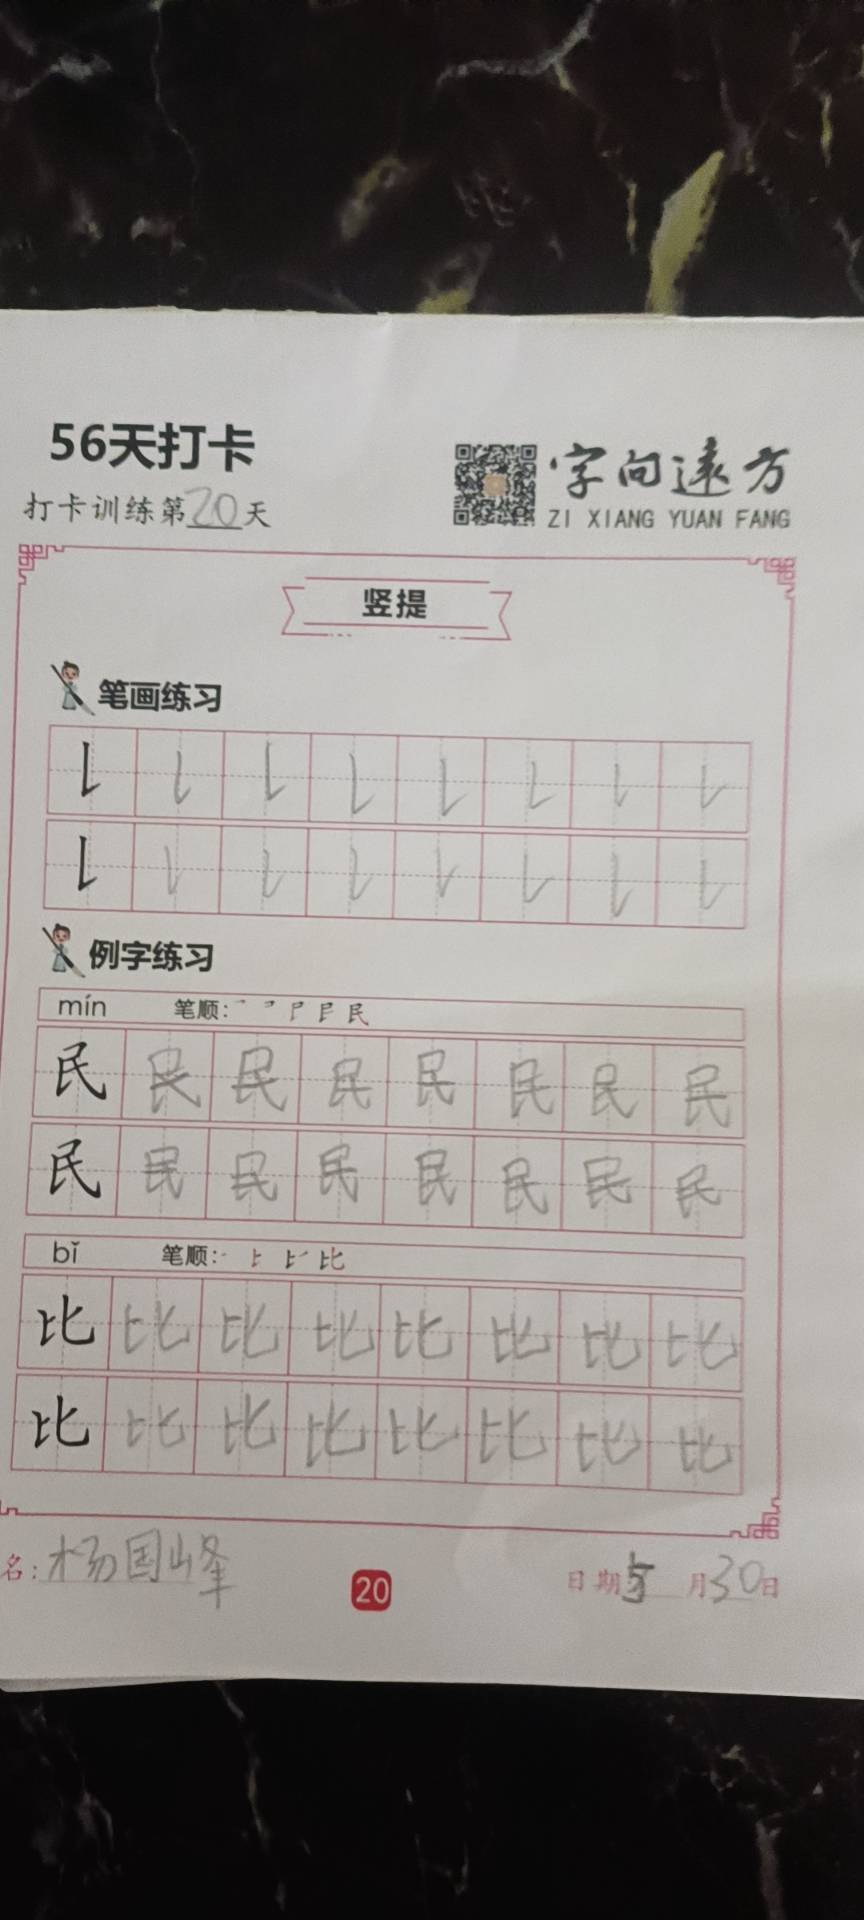 56天打卡
字向遠方
打卡训练第20天
ZI XIANG YUAN FANG
竖提
笔画练习
㇙㇙㇙㇙㇙㇙㇙㇙
㇙㇙㇙㇙㇙㇙㇙㇙
例字练习
mín 笔顺:民
民民民民民民民民
民民民民民民民民
bǐ 笔顺:比
比比比比比比比比
比比比比比比比比
名:杨国峰
20
日期5月30日